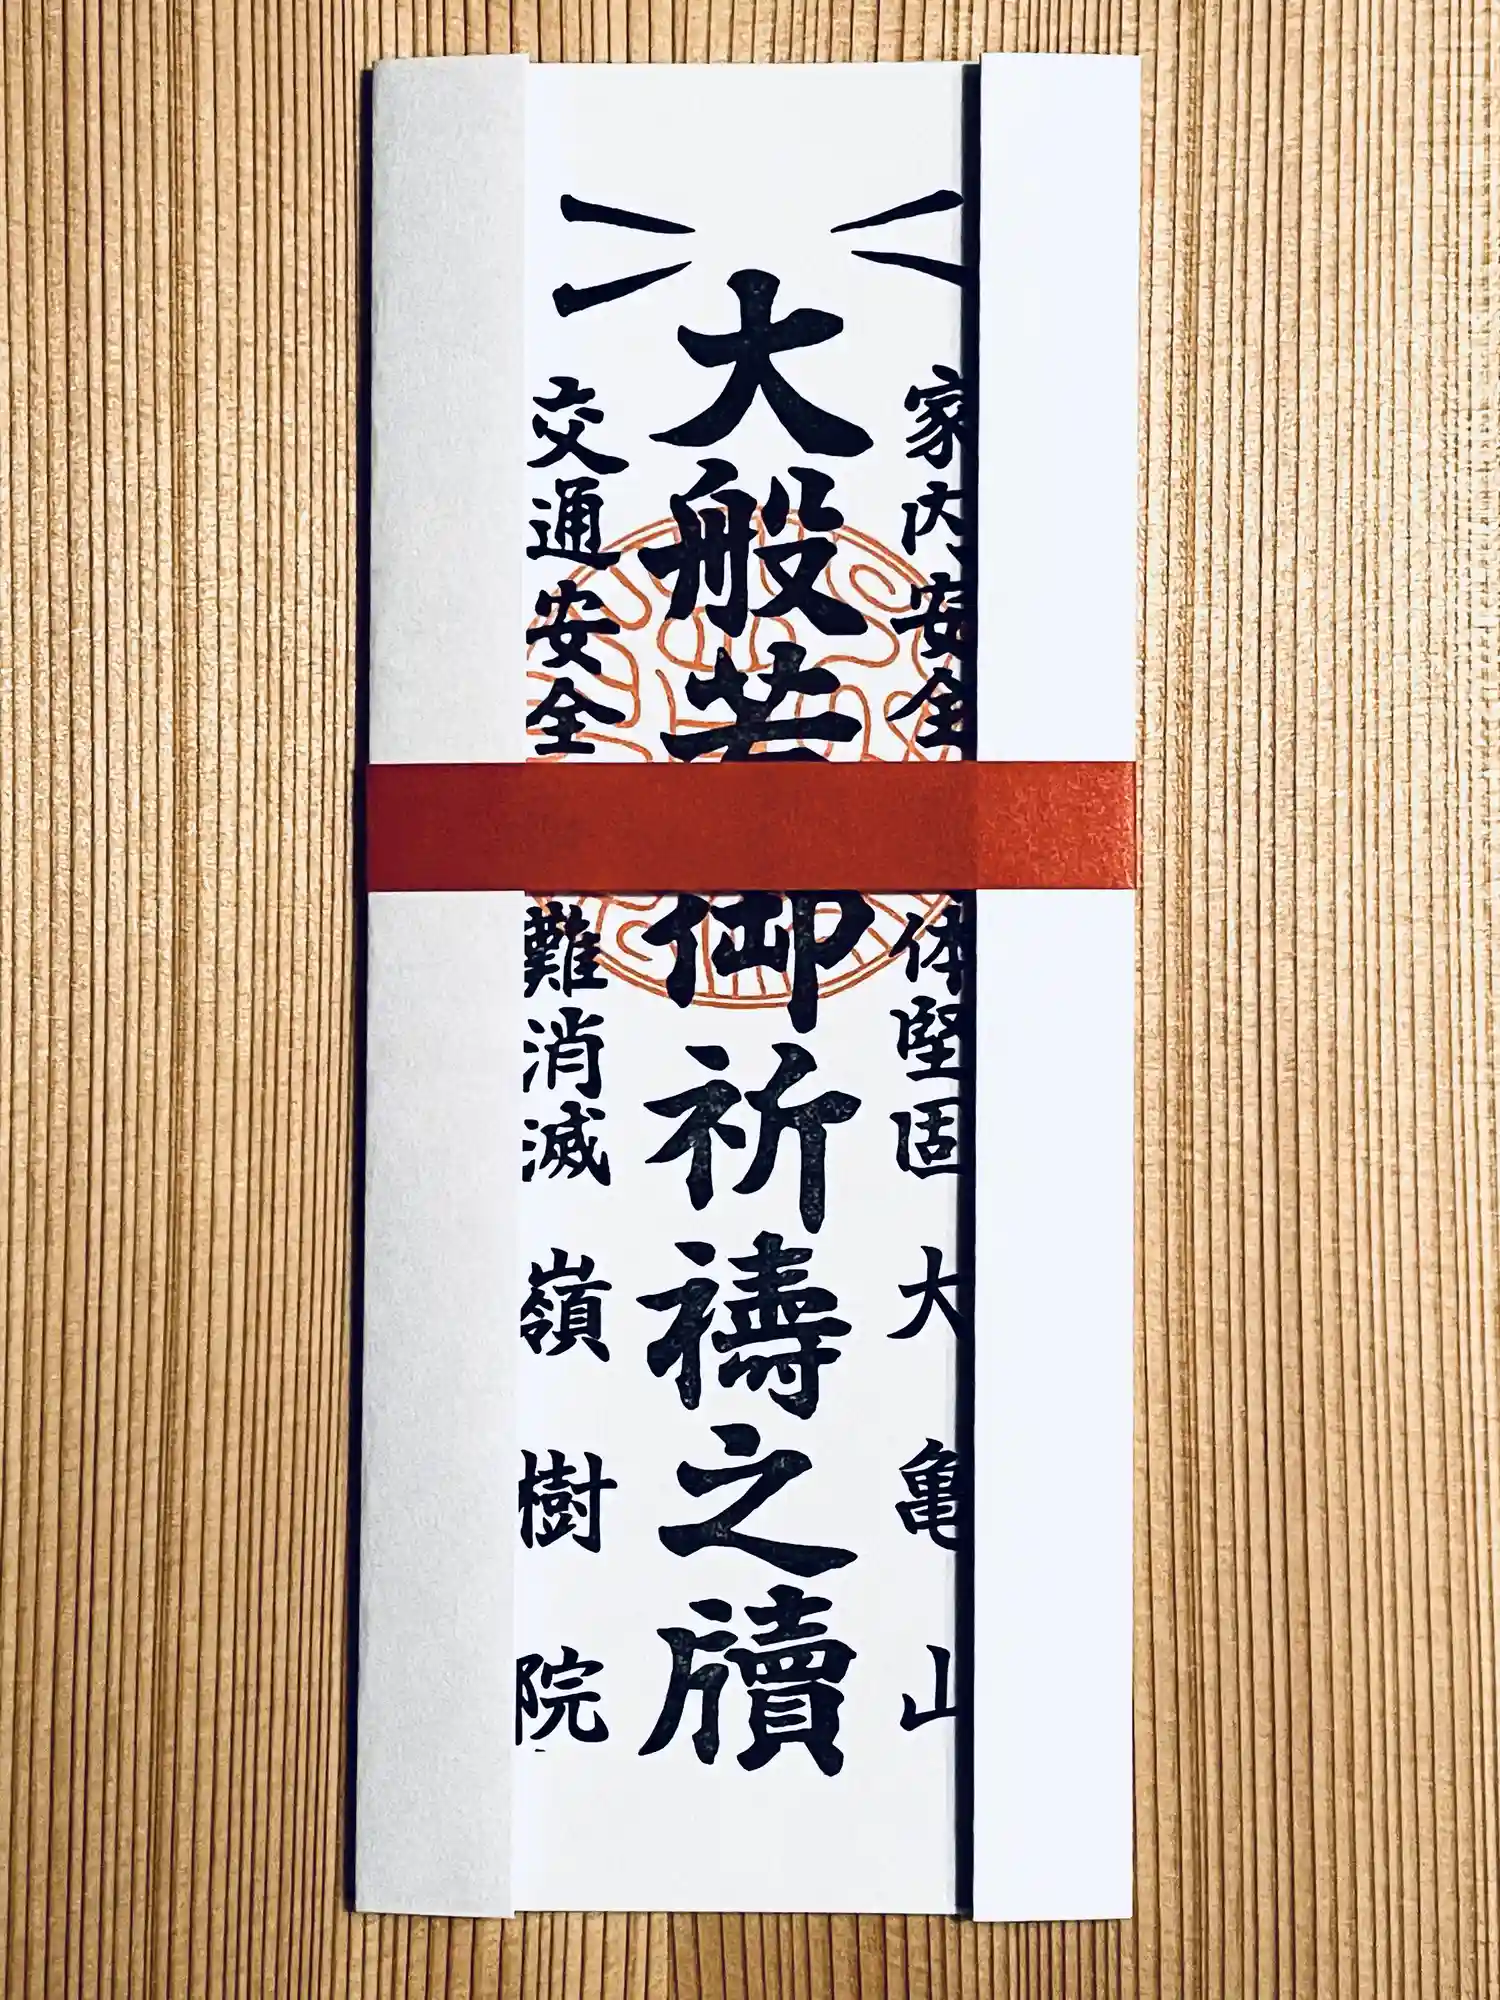 家内安全 体堅固 大亀山
大般若御祈禱之牘
交通安全 難消滅 嶺樹院